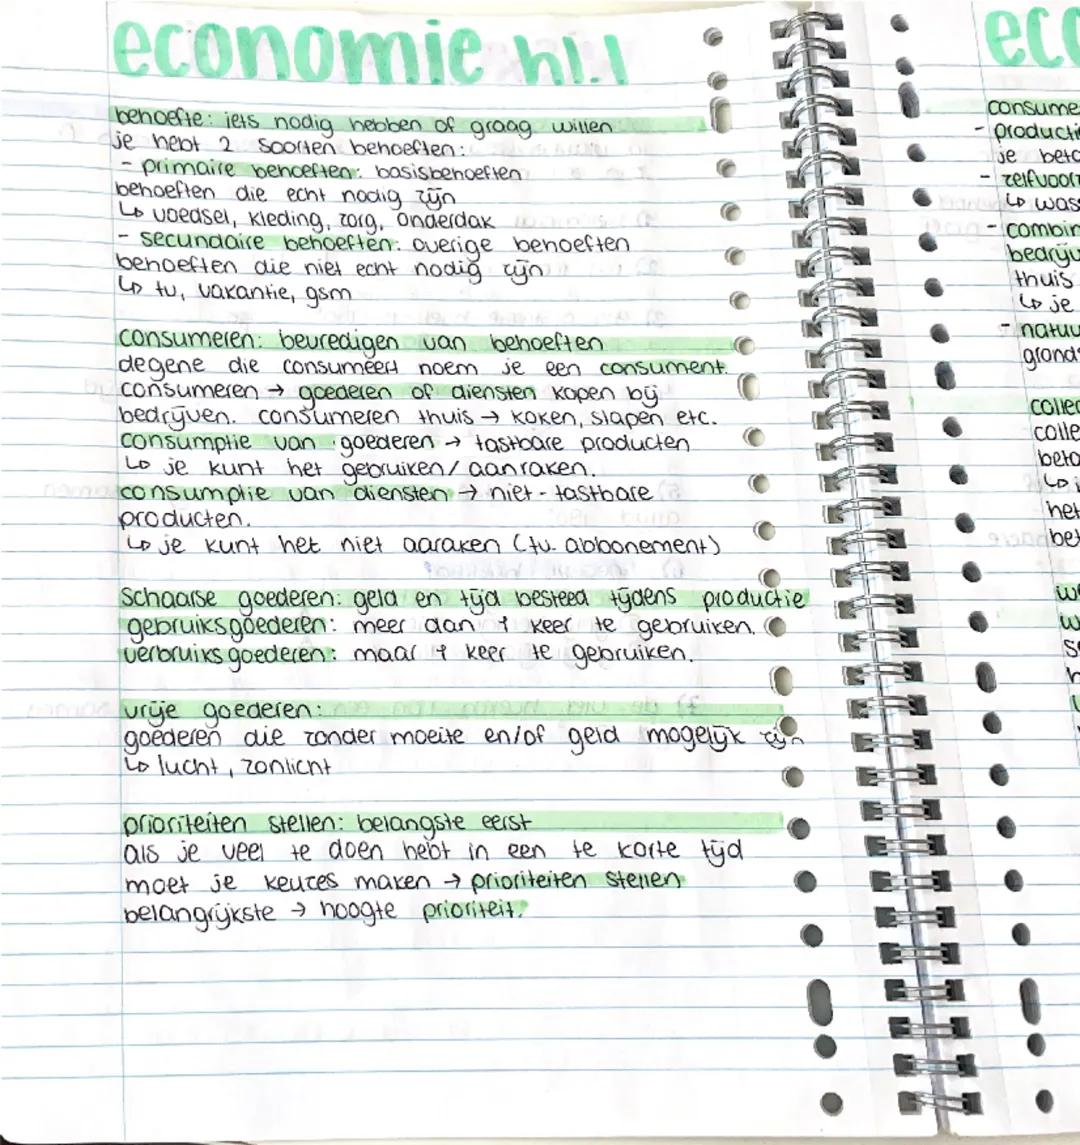 economie h1.1
behoefte: iets nodig hebben of graag willen
je hebt 2 soorten behoeften:
- primaire behoeften: basisbehoeften
behoeften die echt nodig zijn
↳ voedsel, kleding, zorg, onderdak
- secundaire behoeften: overige behoeften
behoeften die niet echt nodig zijn
↳ tv, vakantie, gsm
consumeren: bevredigen van behoeften
degene die consumeert noem je een consument.
consumeren → goederen of diensten kopen bij
bedrijven. consumeren thuis → koken, slapen etc.
consumptie van goederen → tastbare producten
↳ je kunt het gebruiken/aanraken.
consumptie van diensten → niet-tastbare
producten.
↳ je kunt het niet aaraken (tv. abbonement)
schaarse goederen: geld en tijd besteed tijdens productie
gebruiksgoederen: meer dan 1 keer te gebruiken.
verbruiksgoederen: maar 1 keer te gebruiken.
vrije goederen:
goederen die zonder moeite en/of geld mogelijk zijn
↳ lucht, zonlicht
prioriteiten stellen: belangste eerst
als je veel te doen hebt in een te korte tijd
moet je keuzes maken → prioriteiten stellen
belangrijkste → hoogte prioriteit.
ecc
consume
- producti
je beta
- zelfvoorz
↳ was
- combin
bedrijv
thuis
↳ je
- natuu
grond
collec
colle
beta
↳ i
het
bet